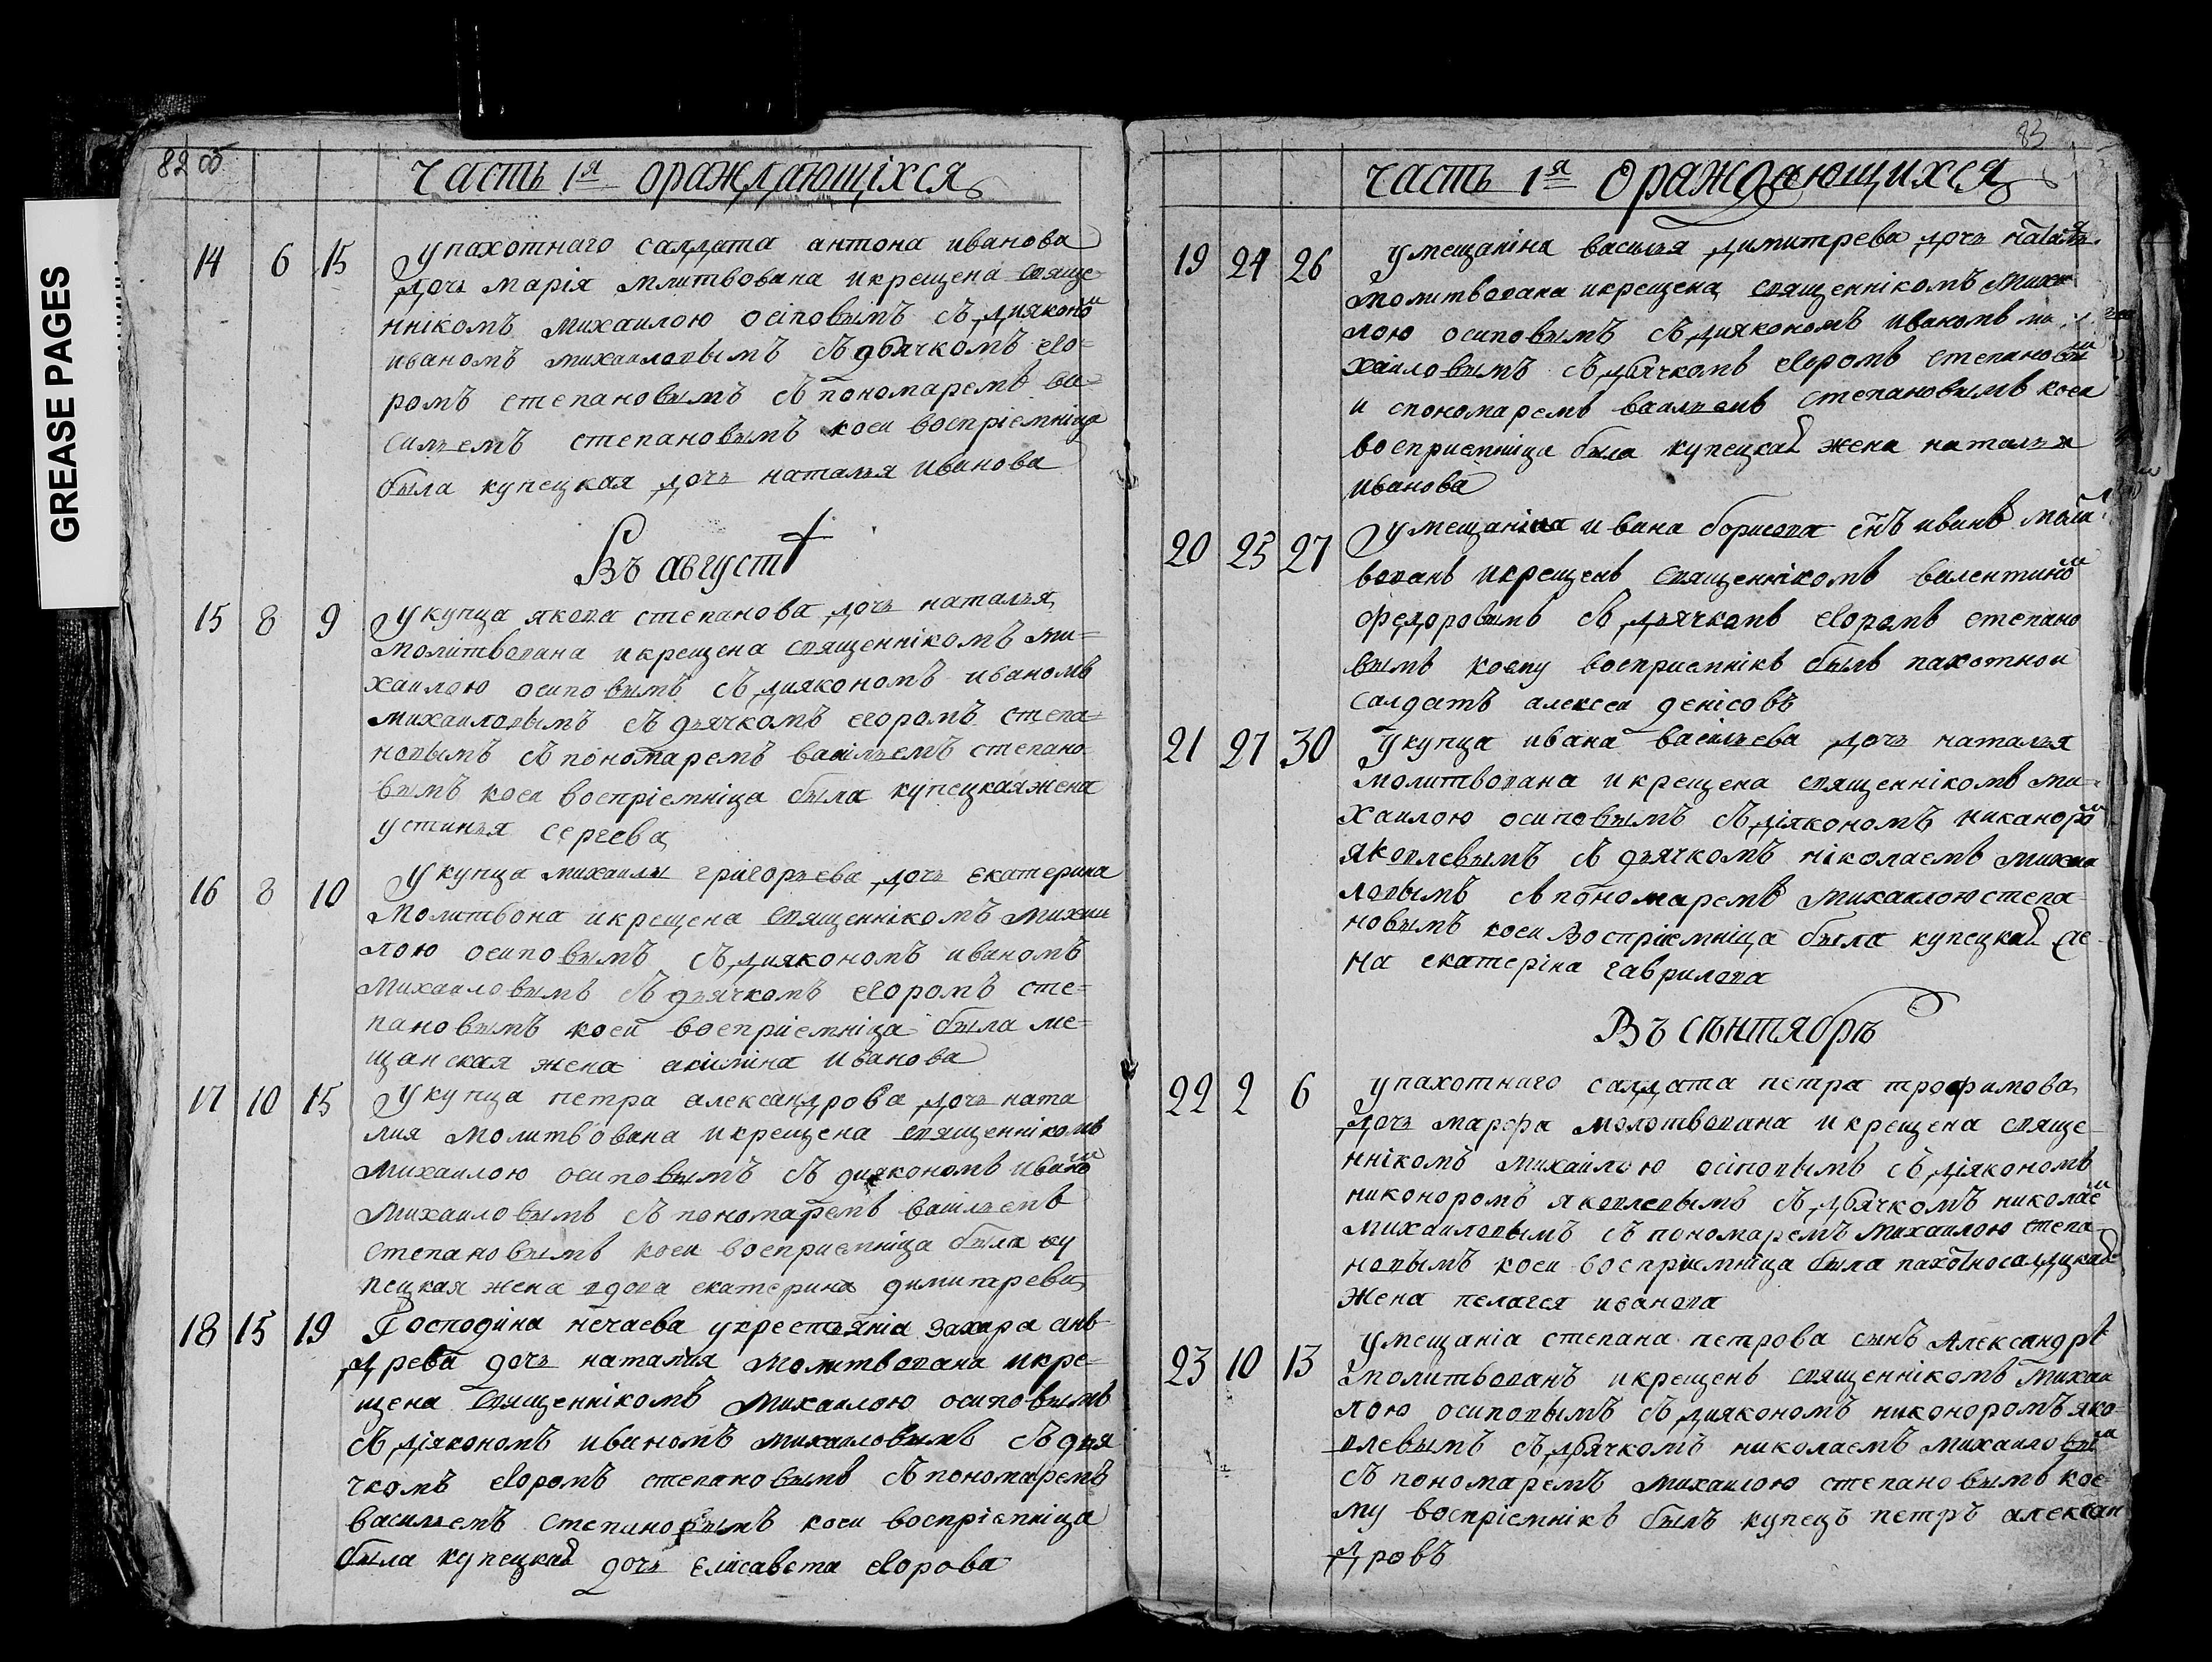 GREASE PAGES
82 об
Часть 1я ораждающіхся
14 6 15 У пахотнаго салдата антона иванова
дочь марія млитвована икрещена свяще-
ннікомъ михаилою осіповымъ съ дияконом
иваномъ михаиловымъ съ дьячкомъ его-
ромъ степановымъ съ пономаремъ ва-
сильемъ степановымъ коеи воспріемніца
была купецкая дочь наталья иванова
Въ августѣ
15 8 9 У купца якова степанова дочь наталья
молитвована икрещена священнікомъ ми-
хаилою осиповымъ съ диякономъ иваномъ
михаиловымъ съ дьячкомъ егоромъ степа-
новымъ съ пономаремъ васильемъ степано-
вымъ коеи воспріемніца была купецкая жена
устинья сергеева
16 8 10 У купца михаилы григорьева дочь екатерина
молитвона икрещена священнікомъ михаи
лою осиповымъ съ дияконономъ иваномъ
михаиловымъ съ дьячкомъ егоромъ сте-
пановымъ коеи восприемніца была ме-
щанская жена акилина иванова
17 10 15 У купца петра александрова дочь ната
лия молитвована икрещена священнікомъ
михаилою осиповымъ съ диякономъ иваном
михаиловымъ съ пономаремъ васильемъ
степановымъ коеи восприемніца была ку
пецкая жена вдова екатерина димитрева
18 15 19 Господина нечаева у крестьяніа захара анъ
древа дочь наталия молитвована икре-
щена священнікомъ михаилою осиповымъ
съ діякономъ иваномъ михаиловымъ съ дья
чкомъ егоромъ степановымъ съ пономаремъ
васильемъ степановымъ коеи воспріемніца
была купецкая дочь елисавета егорова
83
Часть 1я ораждающихся
19 24 26 У мещаніна василья димитрева дочь наталья
молитвована икрещена священнікомъ михаи
лою осиповымъ съ дияконономъ иваномъ ми
хаиловымъ съ дьячкомъ егоромъ степановым
и спономаремъ васильемъ степановымъ коеи
восприемніца была купецкая жена наталья
иванова
20 25 27 У мещаніна ивана борисова снъ иванъ молит
вованъ икрещенъ священнікомъ валентином
федоровымъ съ дьячкомъ егоромъ степано
вымъ коему восприемнікъ былъ пахотнои
салдатъ алексеи денісовъ
21 27 30 У купца ивана васильева дочь наталья
молитвована икрещена священнікомъ ми-
хаилою осиповымъ съ діякономъ никанором
яковлевымъ съ дьячкомъ ніколаемъ михаи
ловымъ съ пономаремъ михаилою степа-
новымъ коеи воспріемніца была купецкая же-
на екатеріна гаврилова
Въ сѣнтябрѣ
22 2 6 У пахотнаго салдата петра трофимова
дочь марфа молотвована икрещена свяще-
ннікомъ михаилою осіповымъ съ діякономъ
никоноромъ яковлевымъ съ дьячкомъ николаем
михаиловымъ съ пономаремъ михаилою степа-
новымъ коеи восприемніца была пахотносалдцкая
жена пелагея иванова
23 10 13 У мещаніа степана петрова сынъ Александръ
молитвованъ икрещенъ священнікомъ михаи
лою осиповымъ съ дияконономъ никоноромъ яко-
влевымъ съ дьячкомъ николаемъ михаиловым
съ пономаремъ михаилою степановымъ кое-
му воспріемнікъ былъ купецъ петръ алексан
дровъ